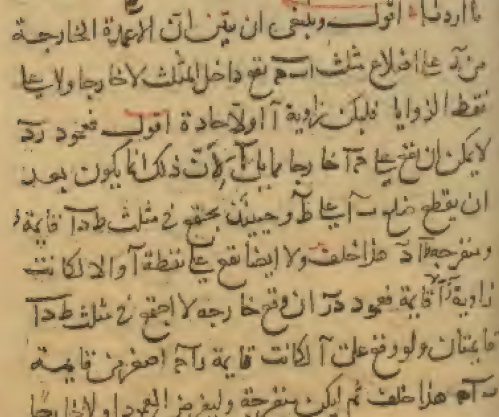 ما اردنا اقول وينبغى ان يتبين ان الاعمدة الخارجة
من د على اضلاع مثلث ا ب ح تقع داخل المثلث لا خارجا ولا على
نقط الزوايا فليكن زاوية ا اولا حادة اقول فعمود د ر
لا يمكن ان يقع على ح ا خارجا مما يلى ا لان ذلك انما يكون بعد
ان يقطع ضلع ب ا على ط وحينئذ يجتمع فى مثلث ط د ا قايمة
ومنفرجة هذا خلف ولا ايضا يقع على نقطة ا والا لكانت
زاوية قايمة فعمود د ر ان وقع خارجه لاجتمع فى مثلث ط د ا
قايمتان ولو وقع على ا لكانت قايمة د ا ح اصغر من قايمة
ب ا ح هذا خلف ثم ليكن منفرجة وليفرض العمود اولا خارجا